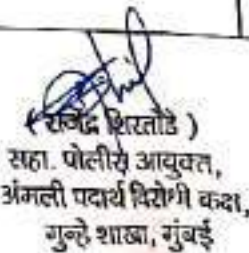 ( राजेंद्र शिरतोडे )
सहा. पोलीस आयुक्त,
अंमली पदार्थ विरोधी कक्ष,
गुन्हे शाखा, मुंबई